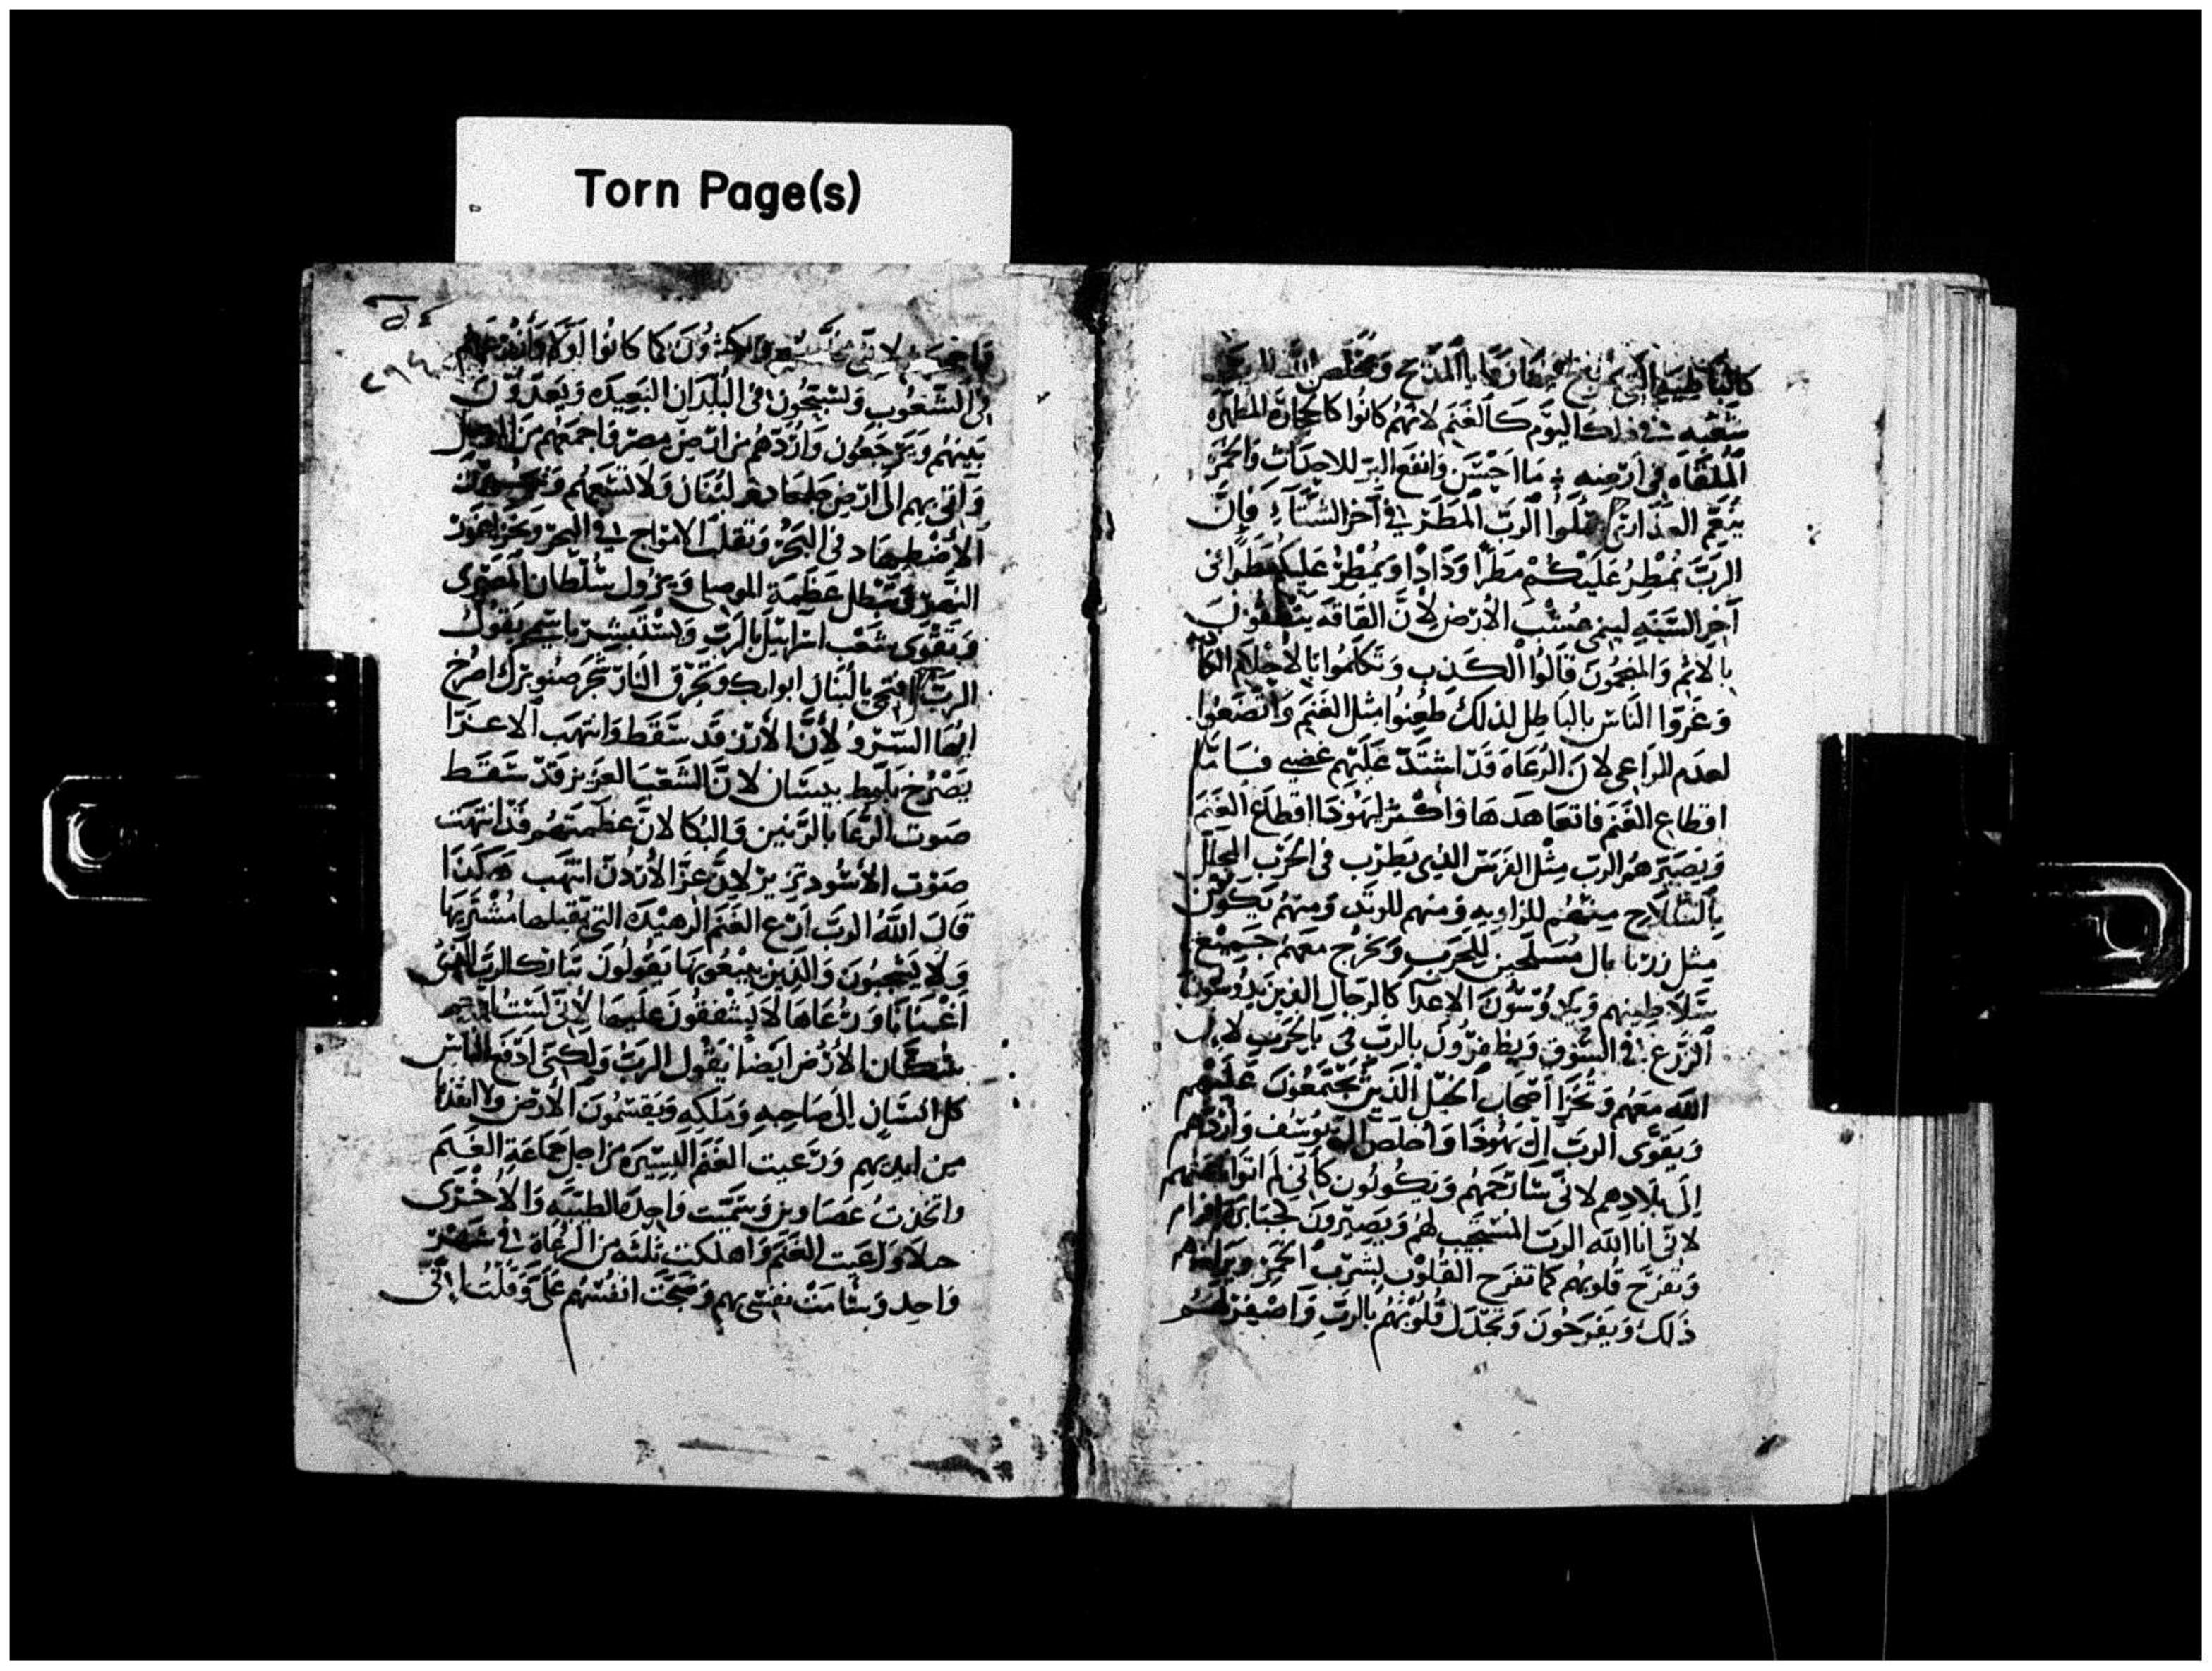 Torn Page(s)
كالباطيه التي المذبح ويخلص الله الرب
شعبه في ذلك اليوم كالغنم لانهم كانوا كالحجاره المطهره
الملقاه في ارضه ما احسن وانفع البر للاحداث والخمر
ينعم العذارى سلوا الرب المطر في آخر الشتاء فان
الرب يمطر عليكم مطرا وذاذا ويمطر عليكم مطرا في
آخر السنه لينمي عشب الارض لان القافه ينطقون
بالاثم والمنجمون قالوا الكذب وتكلموا بالاحلام الكاذبه
وغروا الناس بالباطل لذلك طعنوا مثل الغنم واتضعوا
لعدم الراعي لان الرعاه قد اشتد عليهم غضبي فاما
اقطاع الغنم فاتعاهدها واكثر ليهوذا اقطاع الغنم
ويصيرهم الرب مثل الفرس الذي يطرب في الحرب المجلل
بالسلاح منهم للزاويه ومنهم للوتد ومنهم يكون
مثل زرنابال مسلحين للحرب وتخرج معهم جميع
سلاطينهم ويدوسون الاعدا كالرجال الذين يدوسون
الزرع في السوق ويظفرون بالرب في بالحرب لان
الله معهم وتخزا اصحاب الخيل الذين يجتمعون عليهم
ويقوى الرب ال يهوذا واخلص ال يوسف واردهم
الى بلادهم لاني سارحمهم ويكونون كأني لم
لاني انا الله الرب المستجيب لهم ويصيرون كجبابرة افرام
وتفرح قلوبهم كما تفرح القلوب بشرب الخمر
ذلك ويفرحون وتجدل قلوبهم بالرب واصفر لهم
٢٩٤
لاني ويكثرون كما كانوا اولا
في الشعوب ولسبحون في البلدان البعيده ويعدون
بينهم ويرجعون واردهم من ارض مصر فاجمعهم من الموصل
وآتي بهم الى ارض جلعاد لبنان ولا تسعهم
الاضطهاد في البحر وتقلب الامواج في البحر
النهر وتبطل عظمة الموصلي ويزول سلطان المصري
ويقوى شعب اسرائيل بالرب ويستبشر باسمه يقول
الرب افتح يا لبنان ابوابك وتحرق النار شجر صنوبرك اصرخ
ايها السرو لأن الأرز قد سقط وانتهب الاعزا
يصرخ بلوط بيسان لان الشعب العزيز قد سقط
صوت الرعا بالرنين والبكا لان عظمتهم قد انتهت
صوت الأسود تزير لان عز الأردن انتهب هكذا
قال الله الرب ارع الغنم الرهيده التي يقبلها مشتريها
ولا يستحبون والذين يبيعونها يقولون تبارك الرب الذي
اغنانا ورعاها لا يشفقون عليها لأني لست
سكان الأرض ايضا يقول الرب ولكني ادفع الناس
كل انسان الى صاحبه وملكه ويقسمون الأرض ولا انقذها
من ايديهم ورعيت الغنم اليسيره من اجل جماعة الغنم
واتخذت عصاوين وسميت واحدة الطيبه والأخرى
حلا ورعيت الغنم واهلكت ثلثه من الرعاة في شهر
واحد وسامت نفسي بهم وضجت انفسهم علي وقلت اني